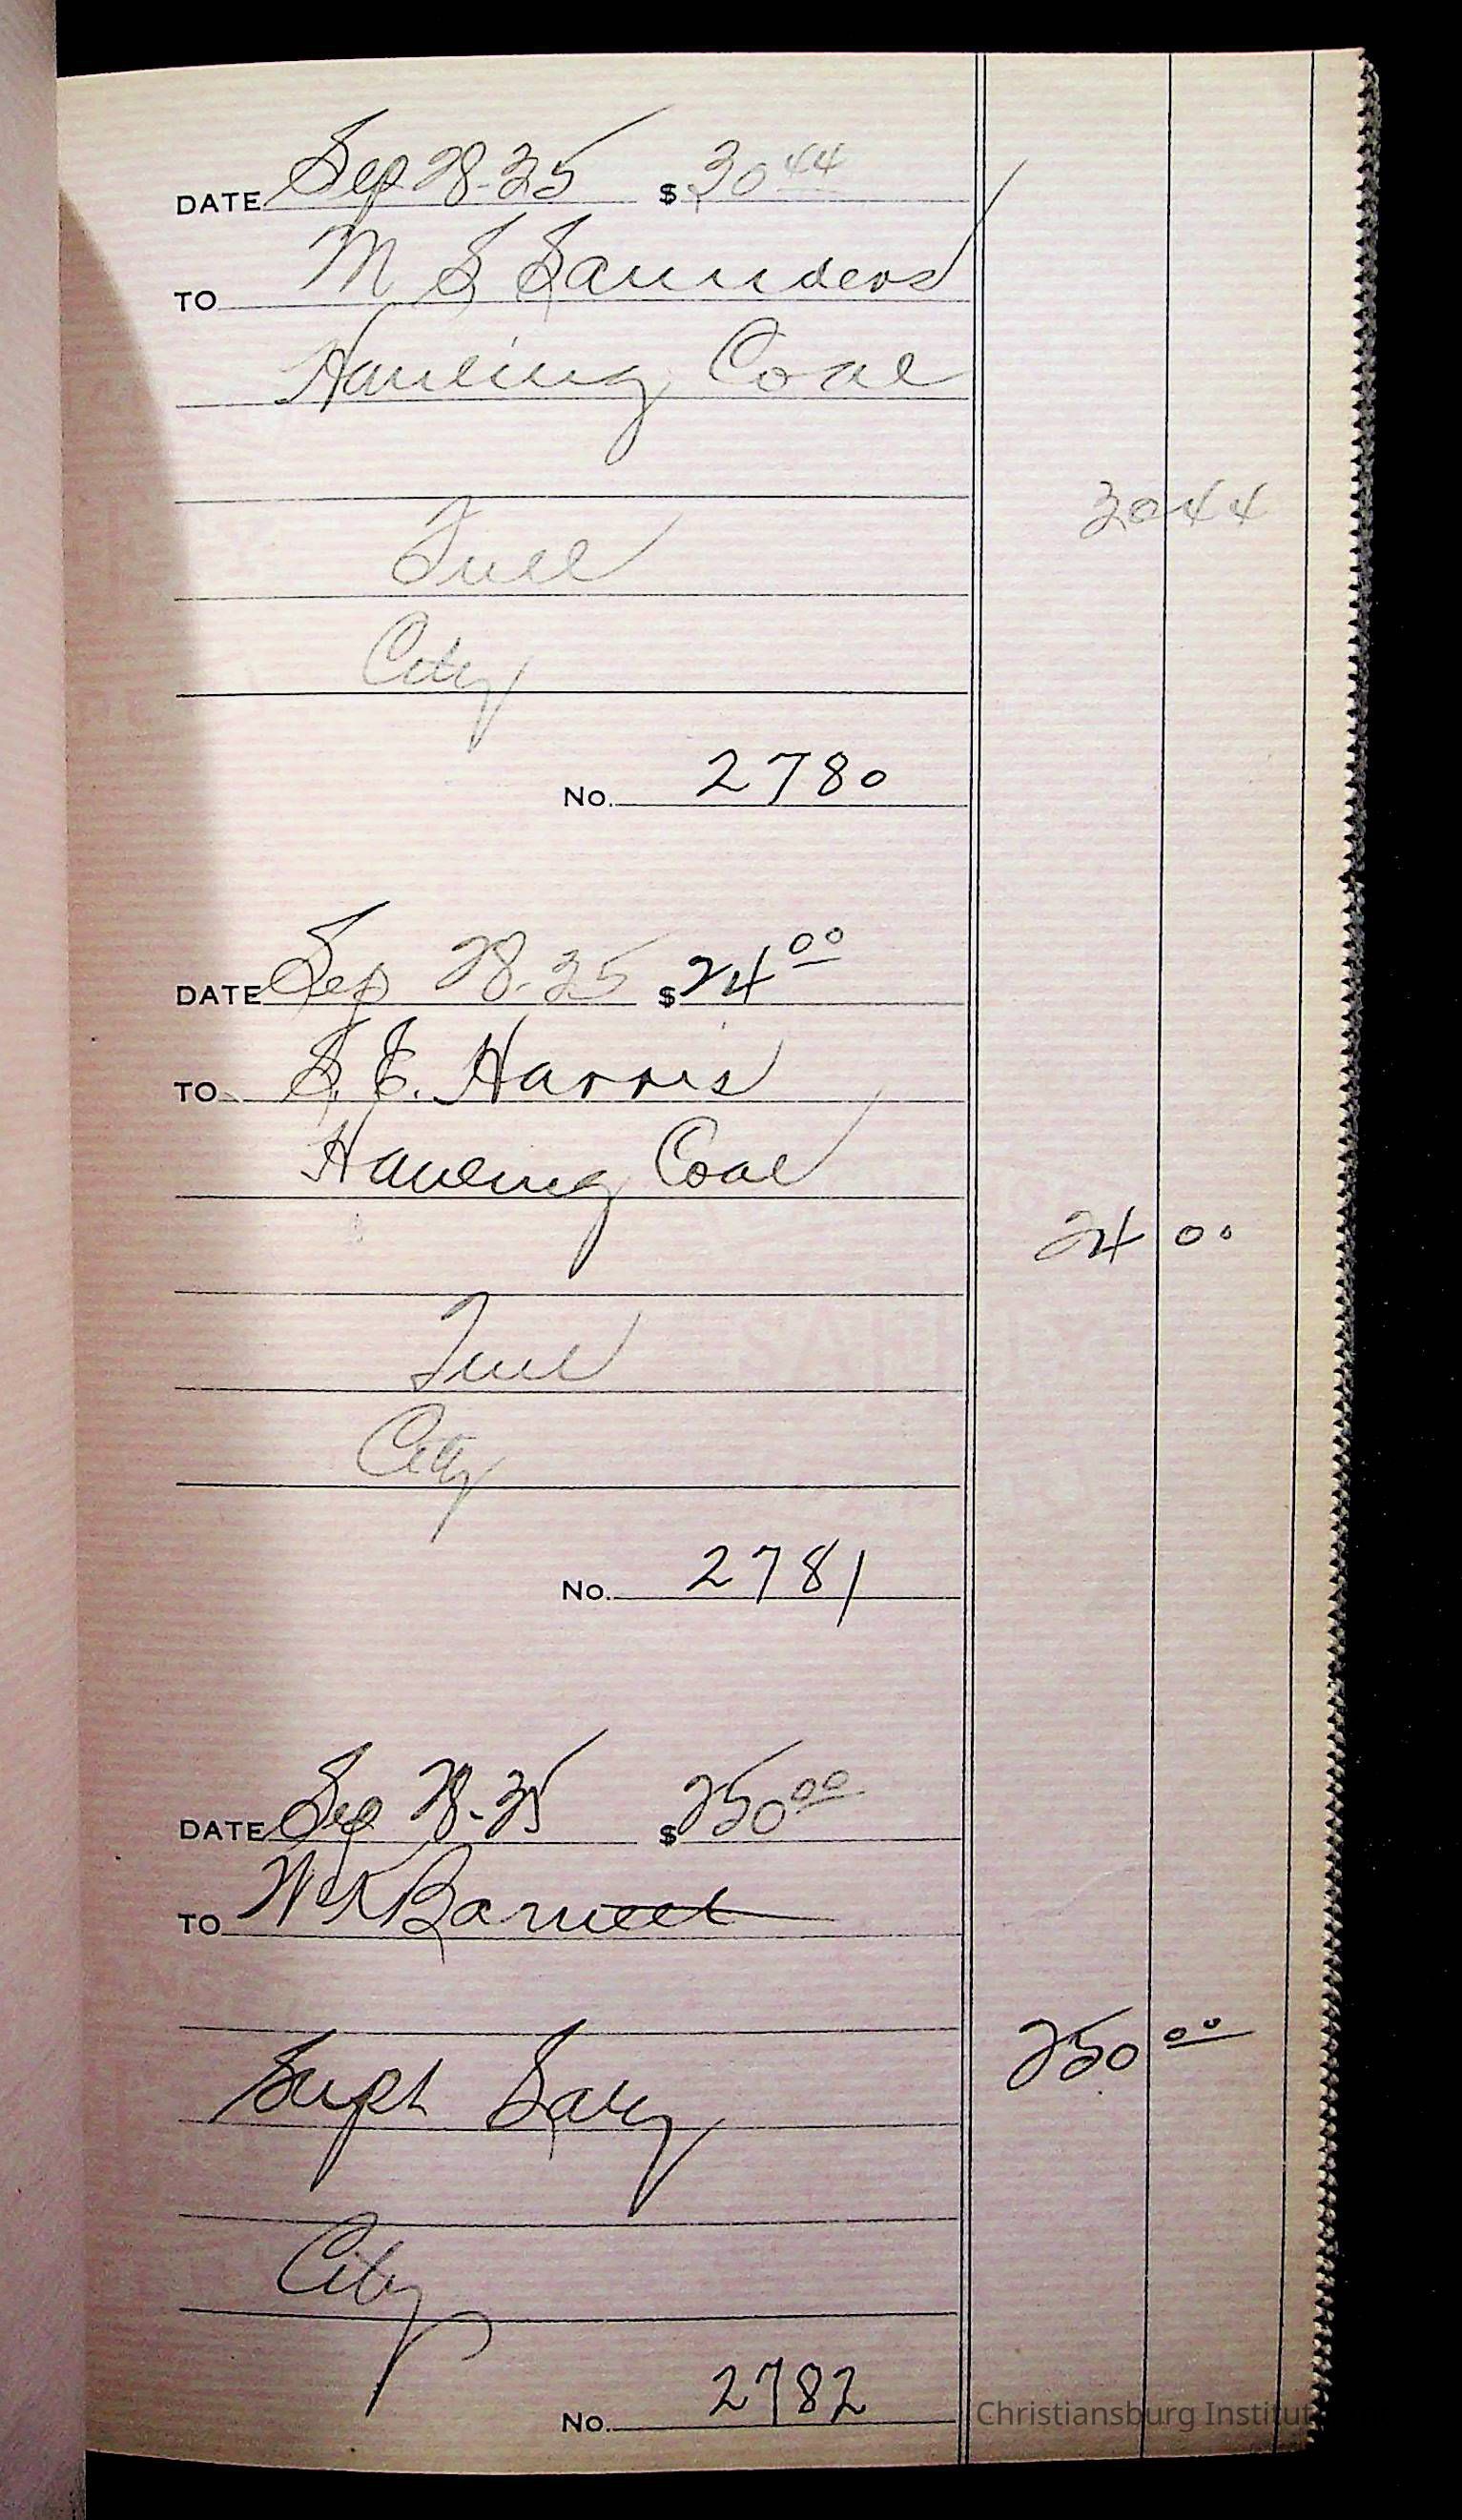 DATE Sep 28-25 $ 30 44
TO M S Saunders
Hauling Coal
30 44
Fuel
City
No. 2780
DATE Sep 28-25 $ 24 00
TO S. E. Harris
Hauling Coal
24 00
Fuel
City
No. 2781
DATE Sep 28-25 $ 250 00
TO Barnett
250 00
Supt Salry
City
No. 2782
Christiansburg Institut